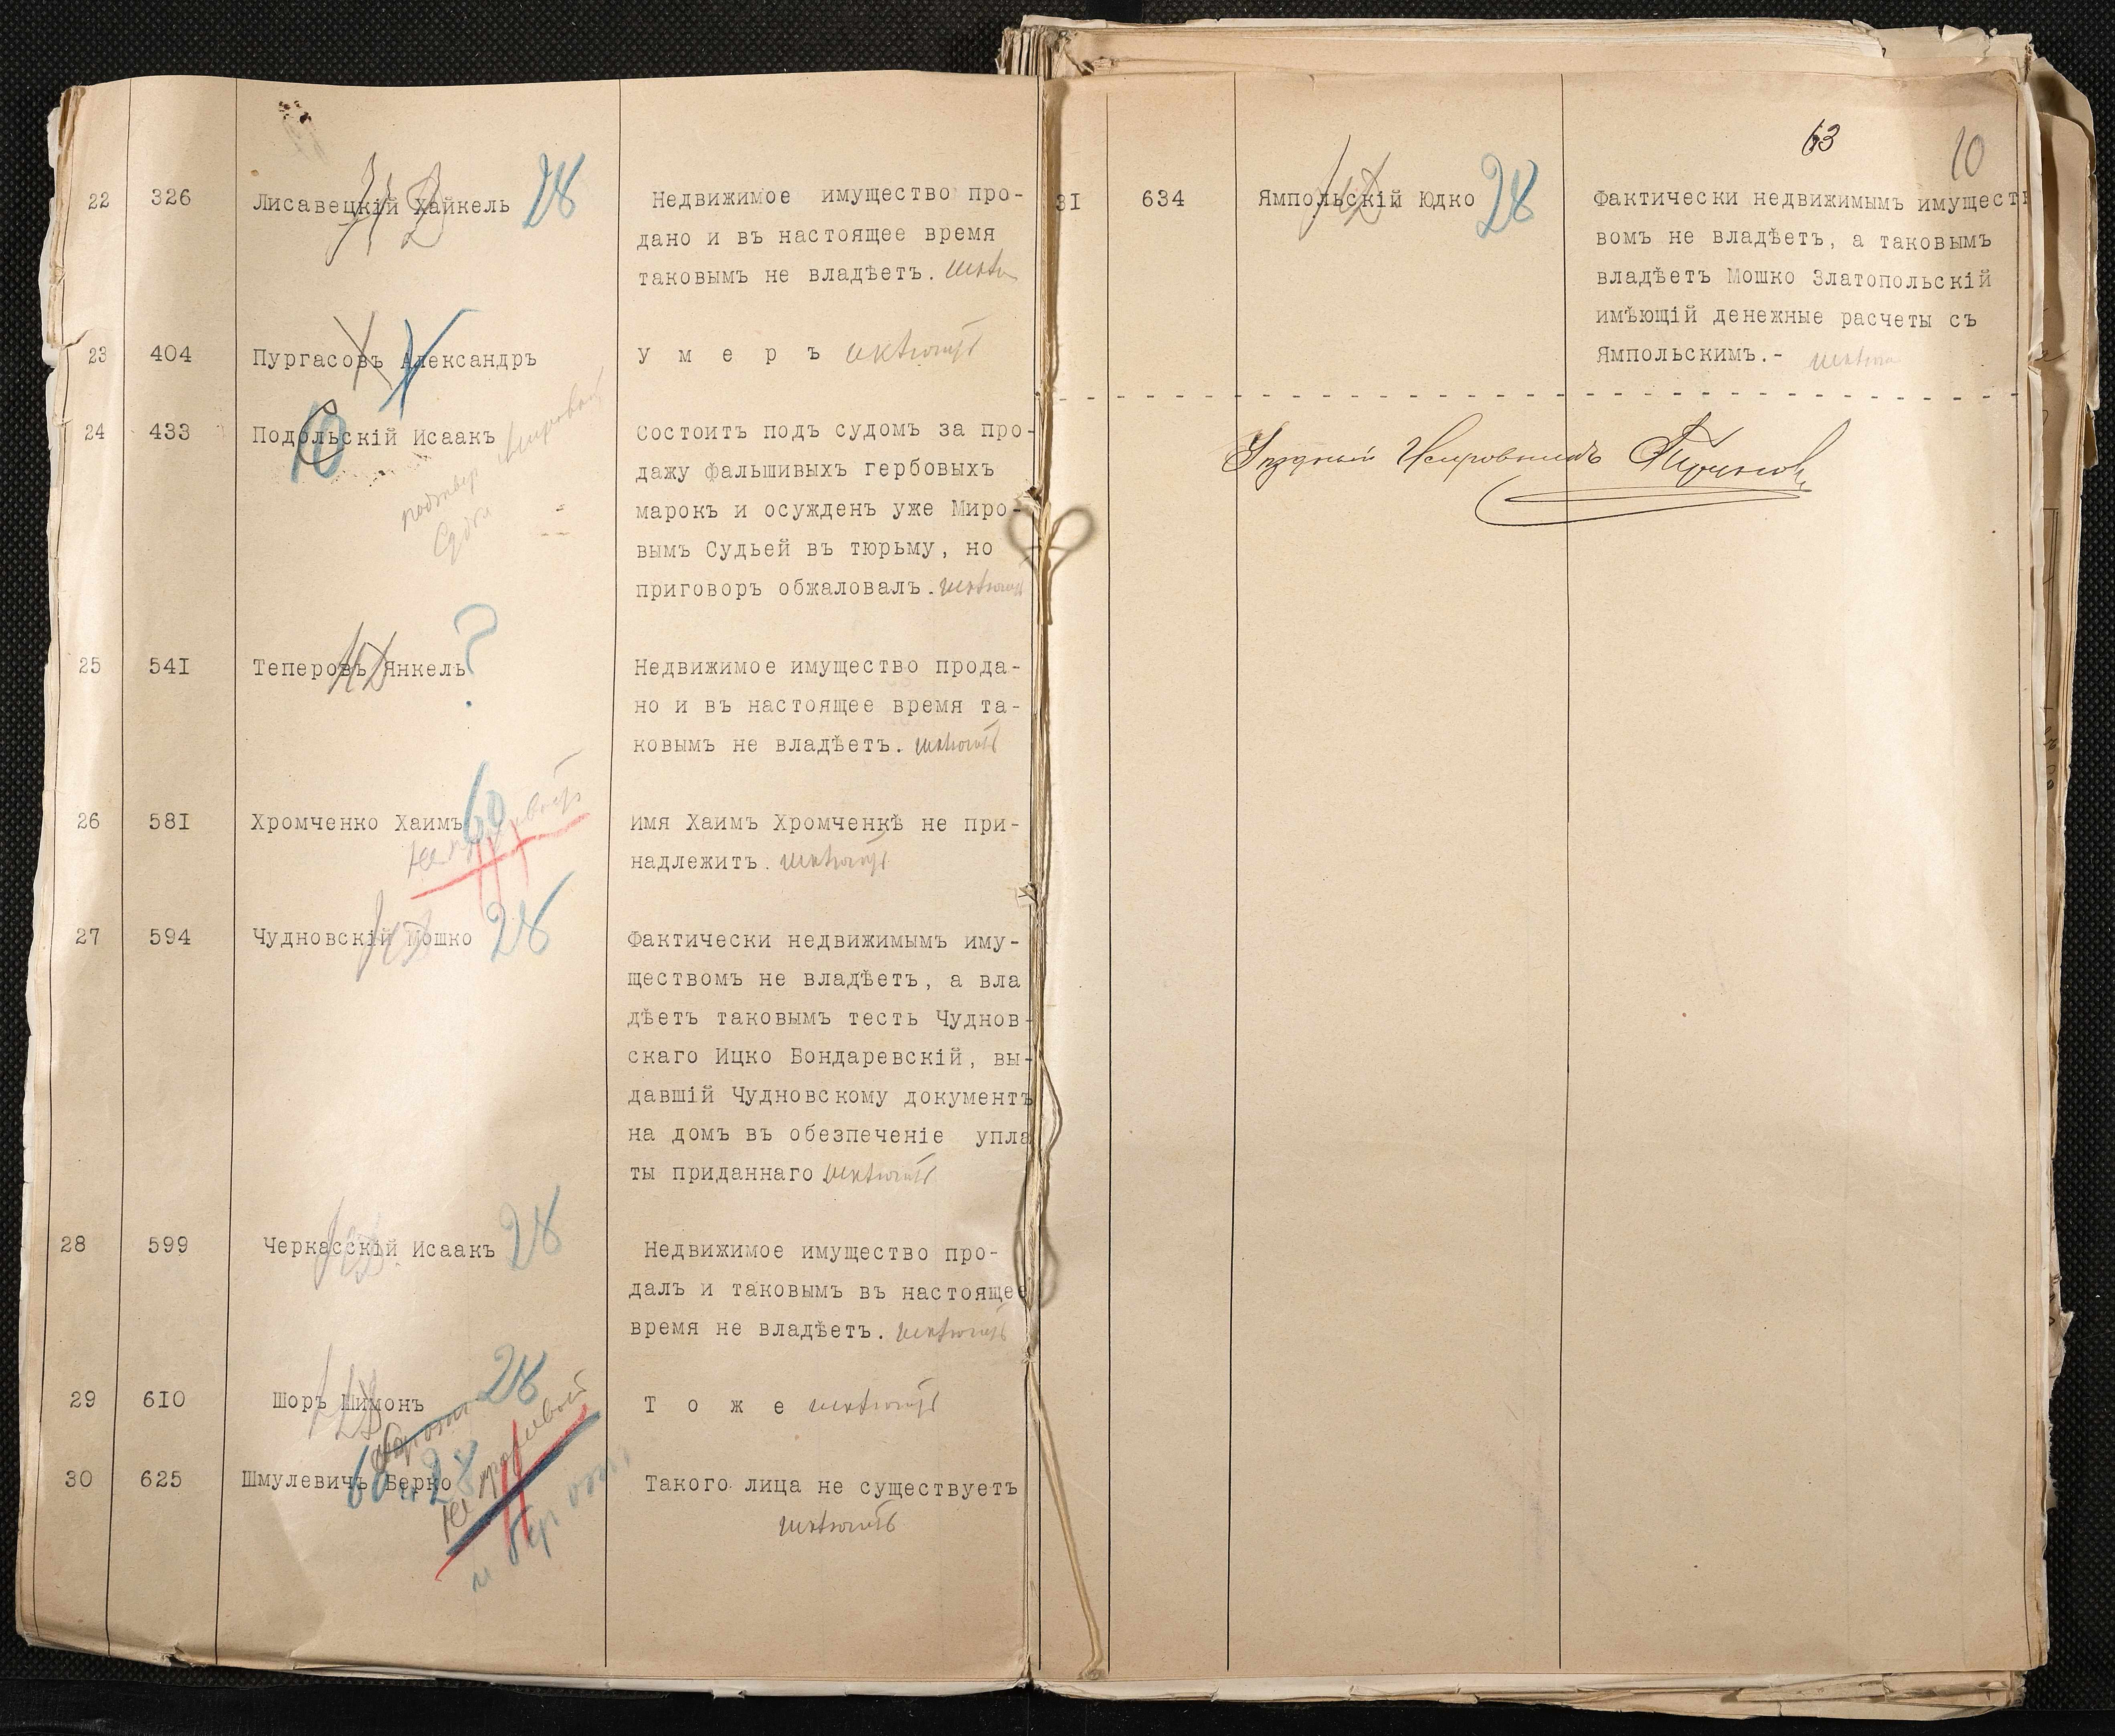 22 326 Лисавецкій Хайкель 28 Недвижимое имущество про-
дано и въ настоящее время
таковымъ не владѣетъ.
23 404 Пургасовъ Александръ У м е р ъ исключить
24 433 Подольскій Исаакъ 10 Состоитъ подъ судомъ за про-
дажу фальшивыхъ гербовыхъ
марокъ и осужденъ уже Миро-
вымъ Судьей въ тюрьму, но
приговоръ обжаловалъ. исключить
25 541 Теперовъ Янкель ? Недвижимое имущество прода-
но и въ настоящее время та-
ковымъ не владѣетъ. исключить
26 581 Хромченко Хаимъ 60 Имя Хаимъ Хромченкѣ не при-
надлежитъ. исключить
27 594 Чудновскій Мошко 28 Фактически недвижимымъ иму-
ществомъ не владѣетъ, а вла
дѣетъ таковымъ тесть Чуднов-
скаго Ицко Бондаревскій, вы-
давшій Чудновскому документъ
на домъ въ обезпеченіе упла
ты приданнаго исключить
28 599 Черкасскій Исаакъ 28 Недвижимое имущество про-
далъ и таковымъ въ настоящее
время не владѣетъ. исключить
29 610 Шоръ Шимонъ 28 Т о ж е исключить
30 625 Шмулевичъ Берко 60 и 28 Такого лица не существуетъ
исключить
63 10
31 634 Ямпольскій Юдко 28 Фактически недвижимымъ имущест
вомъ не владѣетъ, а таковымъ
владѣетъ Мошко Златопольскій
имѣющій денежные расчеты съ
Ямпольскимъ.-
Уѣздный Исправникъ